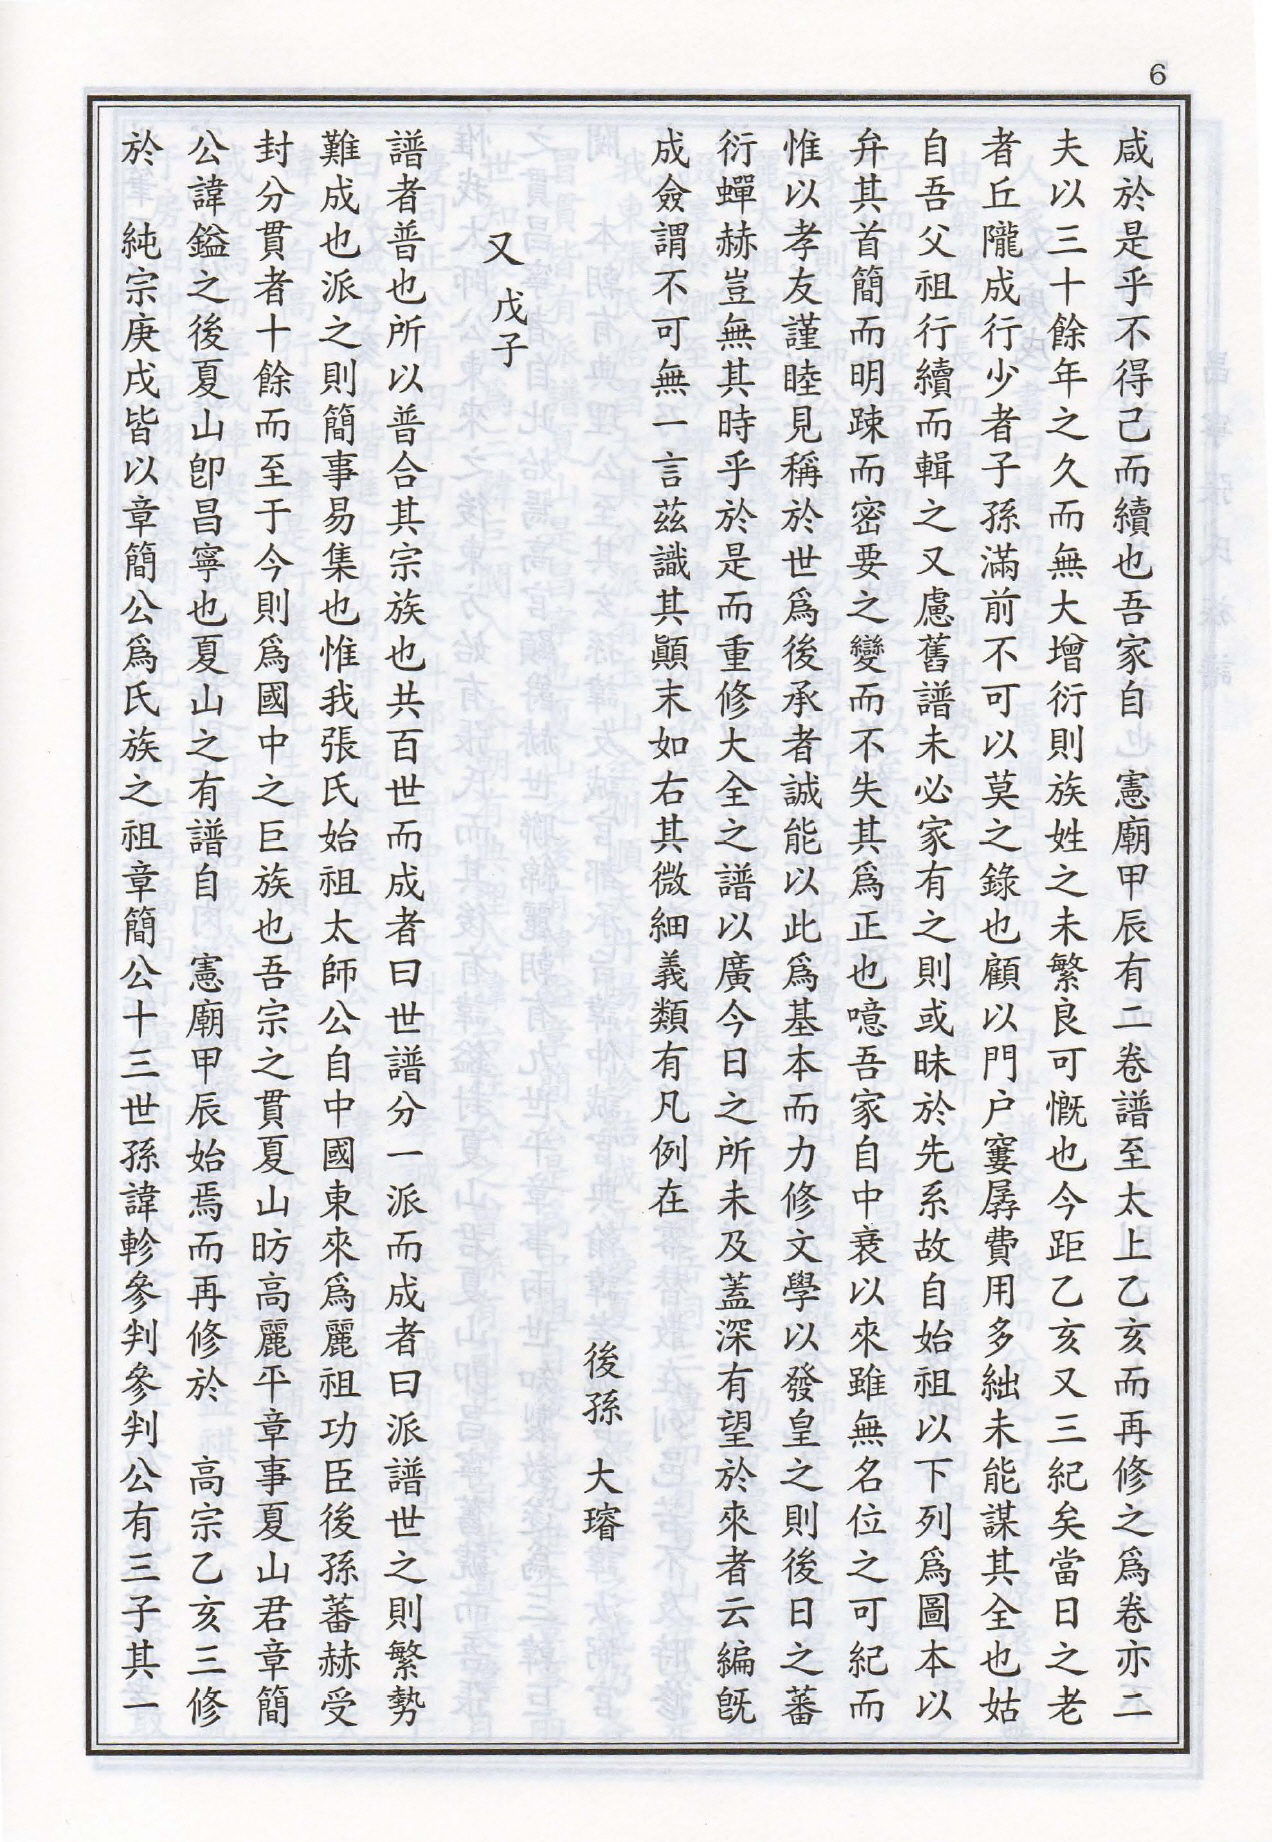 6
咸於是乎不得已而續也吾家自　憲廟甲辰有二卷譜至太上乙亥而再修之爲卷亦二
夫以三十餘年之久而無大增衍則族姓之未繁良可慨也今距乙亥又三紀矣當日之老
者丘隴成行少者子孫滿前不可以莫之錄也顧以門户寠孱費用多絀未能謀其全也姑
自吾父祖行續而輯之又慮舊譜未必家有之則或昧於先系故自始祖以下列爲圖本以
弁其首簡而明踈而密要之變而不失其爲正也噫吾家自中衰以來雖無名位之可紀而
惟以孝友謹睦見稱於世爲後承者誠能以此爲基本而力修文學以發皇之則後日之蕃
衍蟬赫豈無其時乎於是而重修大全之譜以廣今日之所未及蓋深有望於來者云編旣
成僉謂不可無一言茲識其顚末如右其微細義類有凡例在
後孫　大璿
又　戊子
譜者普也所以普合其宗族也共百世而成者曰世譜分一派而成者曰派譜世之則繁勢
難成也派之則簡事易集也惟我張氏始祖太師公自中國東來爲麗祖功臣後孫蕃赫受
封分貫者十餘而至于今則爲國中之巨族也吾宗之貫夏山昉高麗平章事夏山君章簡
公諱鎰之後夏山卽昌寧也夏山之有譜自　憲廟甲辰始焉而再修於　高宗乙亥三修
於　純宗庚戌皆以章簡公爲氏族之祖章簡公十三世孫諱軫參判參判公有三子其一